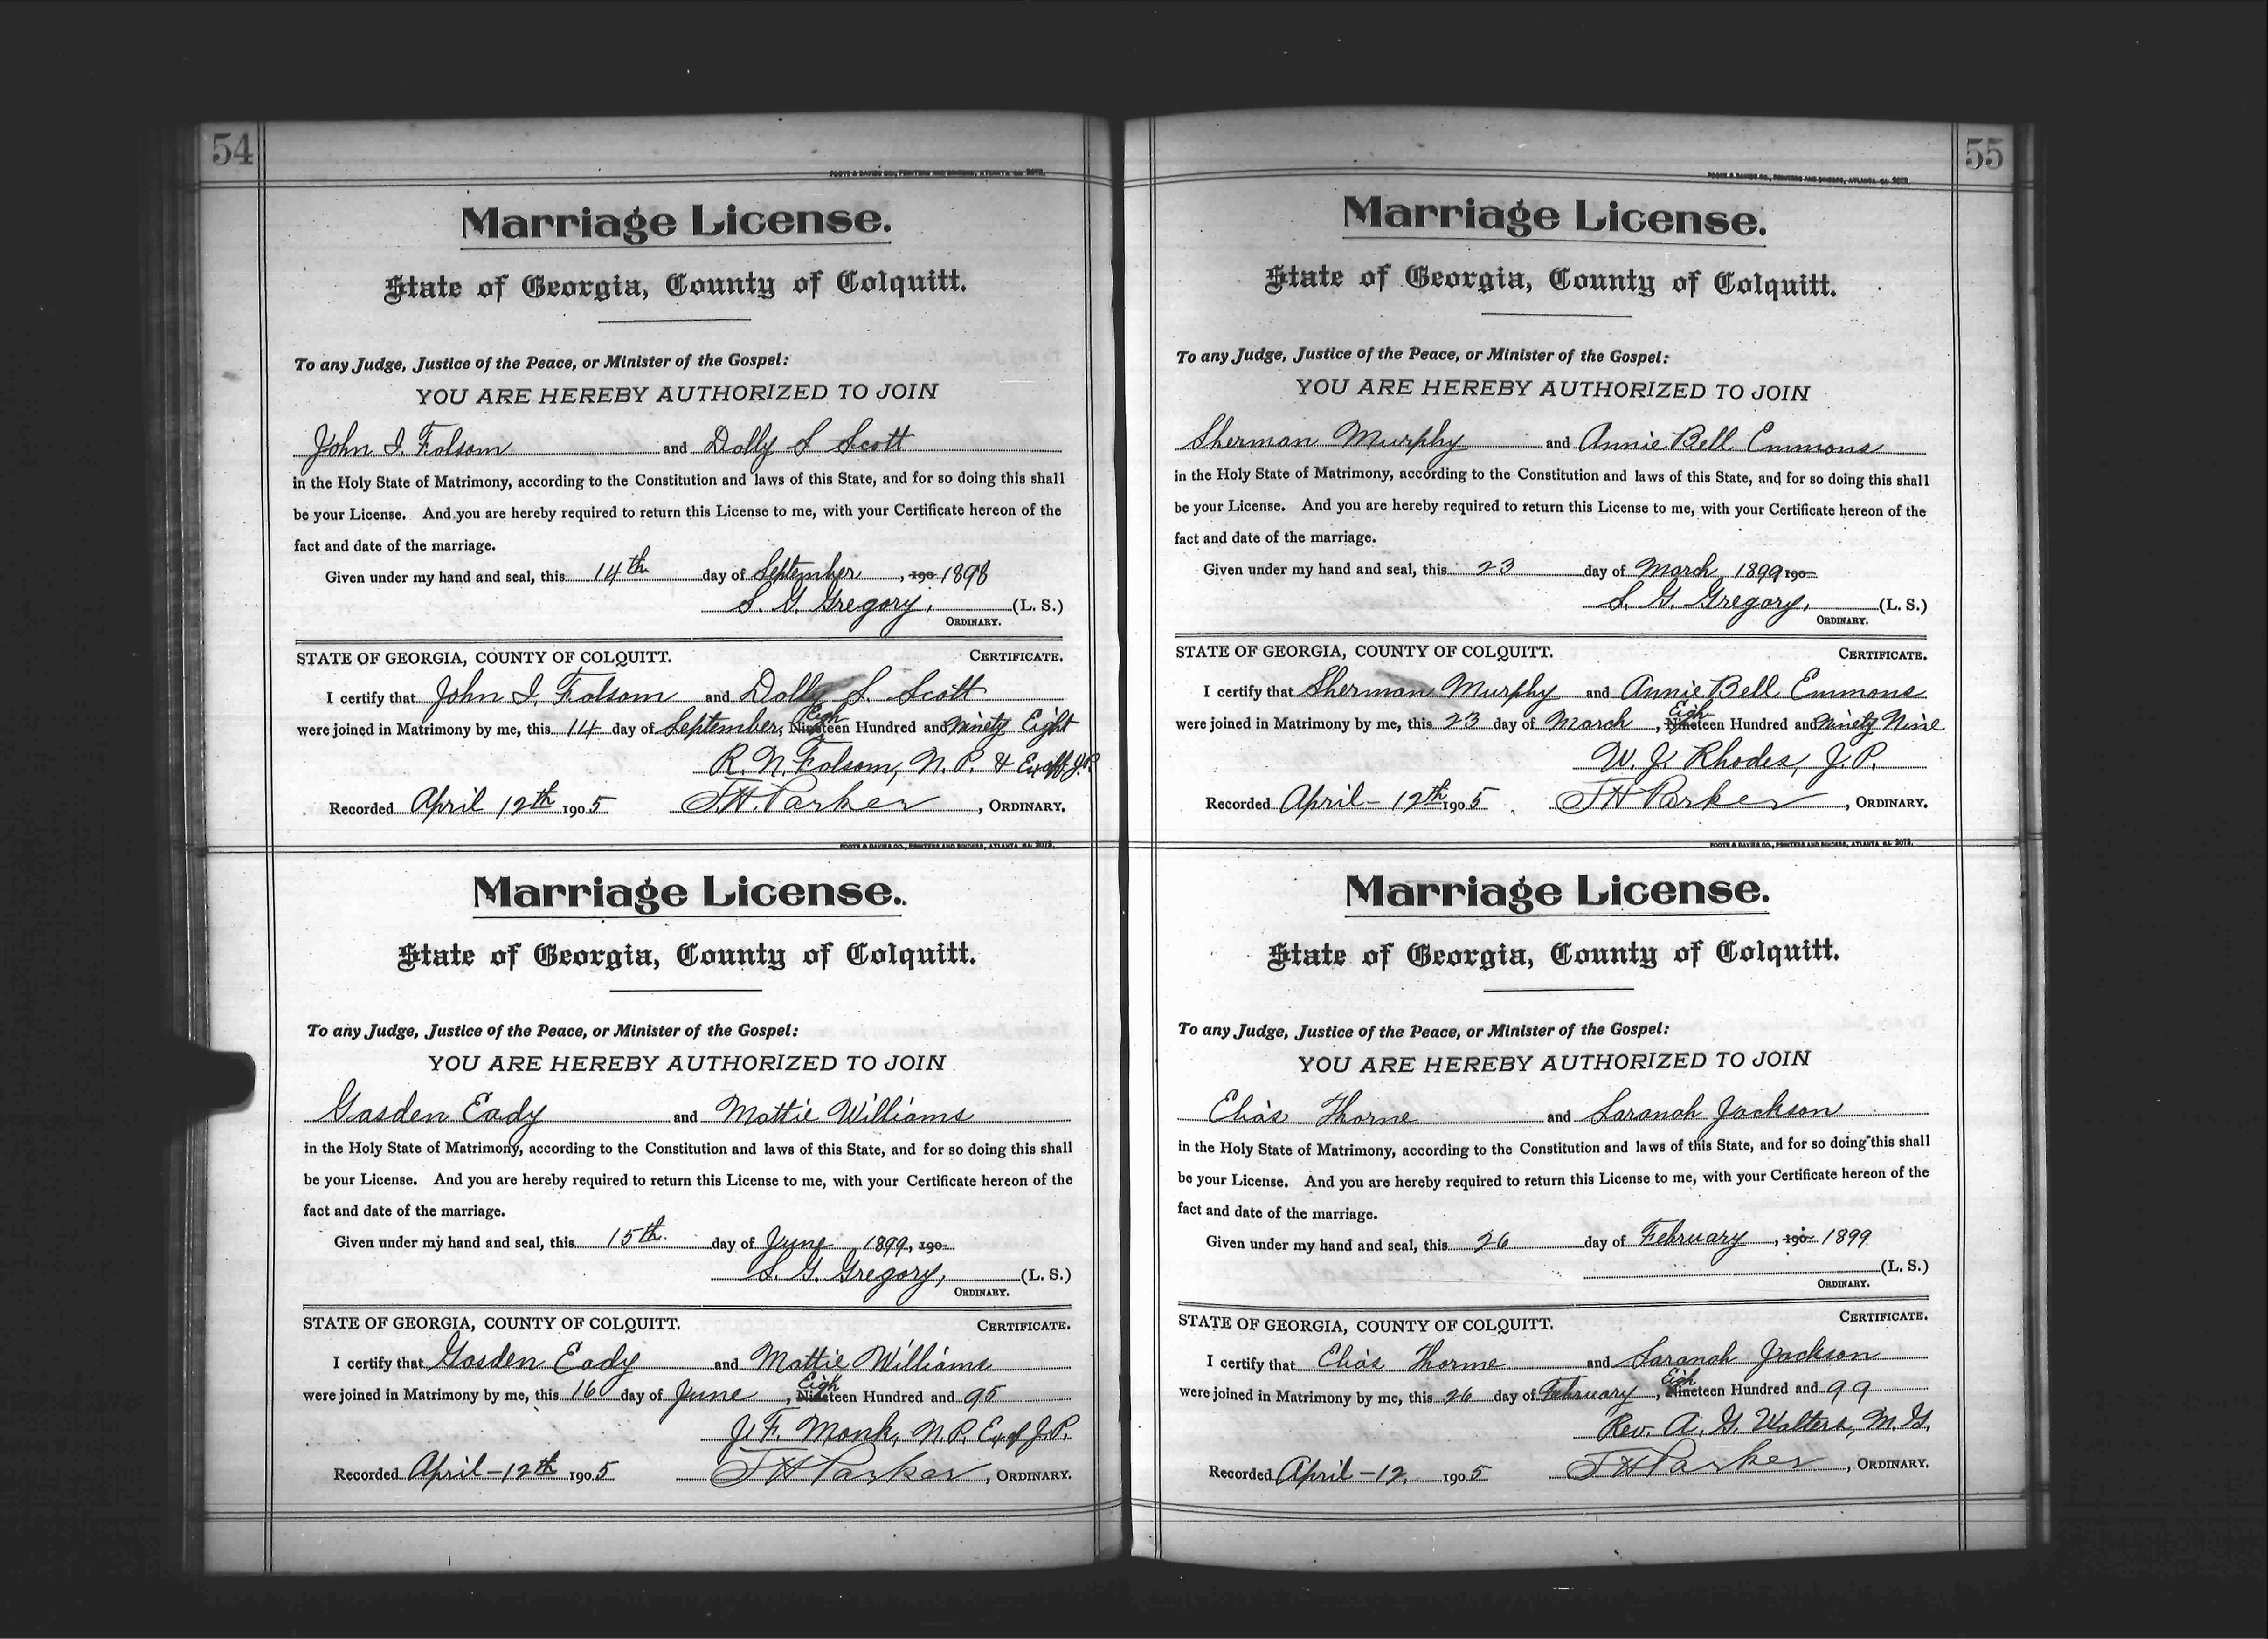 54
FOOTE & DAVIES CO., PRINTERS AND BINDERS, ATLANTA GA. 2072.
Marriage License.
State of Georgia, County of Colquitt.
To any Judge, Justice of the Peace, or Minister of the Gospel:
YOU ARE HEREBY AUTHORIZED TO JOIN
John I. Folsom and Dolly S Scott
in the Holy State of Matrimony, according to the Constitution and laws of this State, and for so doing this shall
be your License. And you are hereby required to return this License to me, with your Certificate hereon of the
fact and date of the marriage.
Given under my hand and seal, this 14th day of September, 190 1898
S. G. Gregory, (L. S.)
ORDINARY.
STATE OF GEORGIA, COUNTY OF COLQUITT. CERTIFICATE.
I certify that John I. Folsom and Dolly S. Scott
were joined in Matrimony by me, this 14 day of September, Nineteen Eigh Hundred and Ninety Eight
R. N. Folsom, N. P. & Ex off J.P.
Recorded April 12th 1905 J.H. Parker, ORDINARY.
FOOTE & DAVIES CO., PRINTERS AND BINDERS, ATLANTA GA. 2072.
Marriage License.
State of Georgia, County of Colquitt.
To any Judge, Justice of the Peace, or Minister of the Gospel:
YOU ARE HEREBY AUTHORIZED TO JOIN
Gasden Eady and Mattie Williams
in the Holy State of Matrimony, according to the Constitution and laws of this State, and for so doing this shall
be your License. And you are hereby required to return this License to me, with your Certificate hereon of the
fact and date of the marriage.
Given under my hand and seal, this 15th. day of June 1899, 190
S. G. Gregory, (L. S.)
ORDINARY.
STATE OF GEORGIA, COUNTY OF COLQUITT. CERTIFICATE.
I certify that Gasden Eady and Mattie Williams
were joined in Matrimony by me, this 16 day of June, Nineteen Eigh Hundred and 95
J. F. Monk, N.P. Ex of J.P.
Recorded April-12th 1905 J H Parker, ORDINARY.
55
FOOTE & DAVIES CO., PRINTERS AND BINDERS, ATLANTA GA. 2072.
Marriage License.
State of Georgia, County of Colquitt.
To any Judge, Justice of the Peace, or Minister of the Gospel:
YOU ARE HEREBY AUTHORIZED TO JOIN
Sherman Murphy and Annie Bell Emmons
in the Holy State of Matrimony, according to the Constitution and laws of this State, and for so doing this shall
be your License. And you are hereby required to return this License to me, with your Certificate hereon of the
fact and date of the marriage.
Given under my hand and seal, this 23 day of March, 1899 190
S. G. Gregory, (L. S.)
ORDINARY.
STATE OF GEORGIA, COUNTY OF COLQUITT. CERTIFICATE.
I certify that Sherman Murphy and Annie Bell Emmons
were joined in Matrimony by me, this 23 day of March, Nineteen Eigh Hundred and Ninety Nine
W. J. Rhodes, J.P.
Recorded April-12th 1905 J H Parker, ORDINARY.
FOOTE & DAVIES CO., PRINTERS AND BINDERS, ATLANTA GA. 2072.
Marriage License.
State of Georgia, County of Colquitt.
To any Judge, Justice of the Peace, or Minister of the Gospel:
YOU ARE HEREBY AUTHORIZED TO JOIN
Elias Thorne and Saranah Jackson
in the Holy State of Matrimony, according to the Constitution and laws of this State, and for so doing this shall
be your License. And you are hereby required to return this License to me, with your Certificate hereon of the
fact and date of the marriage.
Given under my hand and seal, this 26 day of February, 190 1899
(L. S.)
ORDINARY.
STATE OF GEORGIA, COUNTY OF COLQUITT. CERTIFICATE.
I certify that Elias Thorne and Saranah Jackson
were joined in Matrimony by me, this 26 day of February, Nineteen Eigh Hundred and 99
Rev. A. G. Walters, M.G.
Recorded April-12, 1905 J H Parker, ORDINARY.